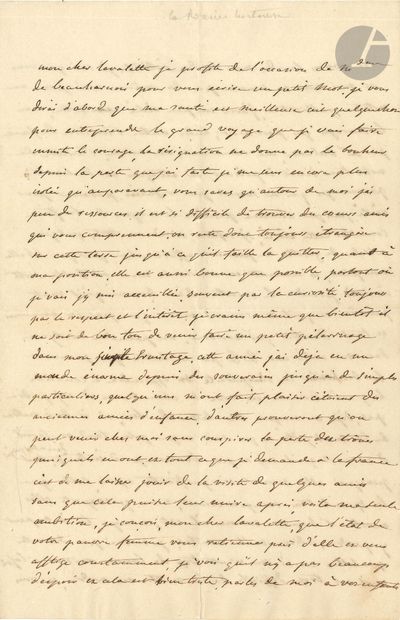 la Reine Hortense
mon cher lavalette je profite de l'occasion de md
de beauharnois pour vous ecrire un petit mot, je vous
dirai d'abord que ma santé est meilleure c'est quelque chose
pour entreprendre le grand voyage que je vais faire
ensuite le courage, la résignation ne donne pas le bonheur
depuis la perte que j'ai faite je me sens encore plus
isolée qu'auparavant, vous savez qu'autour de moi j'ai
peu de ressources, il est si difficile de trouver des cœurs amis
qui vous comprennent, on reste donc toujours étrangère
sur cette terre jusqu'à ce qu'il faille la quitter, quant à
ma position, elle est aussi bonne que possible, partout où
je vais j'y suis accueillie souvent par la curiosité toujours
par le respect et l'intérêt je crains même que bientôt il
ne soit de bon ton de venir faire un petit pélerinage
dans mon simple hermitage, cette année j'ai déja eu un
monde énorme depuis des souverains jusqu'à de simples
particuliers, quelqu'uns m'ont fait plaisir c'étoient des
anciennes amies d'enfance, d'autres prouveront qu'on
peut venir chez moi sans conspirer la perte des trônes
puisqu'ils en ont et tout ce que je demande à la france
c'est de me laisser jouir de la visite de quelques amis
sans que cela puisse leur nuire après, voila ma seule
ambition, je conçois, mon cher lavalette, que l'état de
votre pauvre femme vous retienne près d'elle et vous
afflige constamment, je vois qu'il n'y a pas beaucoup
d'espoir et cela est bien triste, parlez de moi à vos enfants